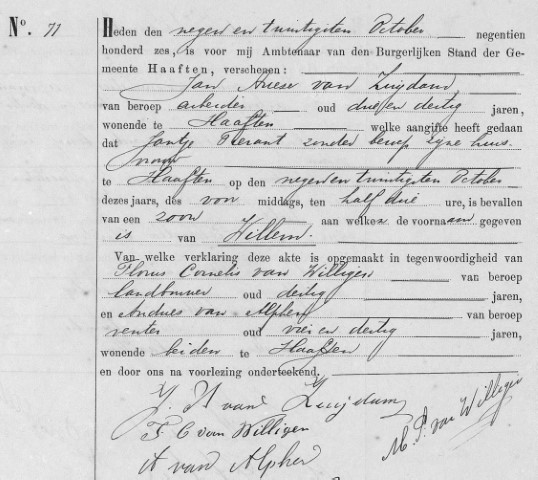 Nº. 71
Heden den negen en twintigsten October negentien
honderd zes, is voor mij Ambtenaar van den Burgerlijken Stand der Ge-
meente Haaften, verschenen:
Jan Aries van Zuijdam
van beroep arbeider oud drie en dertig jaren,
wonende te Haaften welke aangifte heeft gedaan
dat Jantje Pierant zonder beroep zijne huis-
vrouw
te Haaften op den negen en twintigsten October
dezes jaars, des voor middags, ten half drie ure, is bevallen
van een zoon aan welken de voornaam gegeven
is van Willem.
Van welke verklaring deze akte is opgemaakt in tegenwoordigheid van
Florus Cornelis van Willigen van beroep
landbouwer oud dertig jaren,
en Andries van Alphen van beroep
renter oud vier en dertig jaren,
wonende beiden te Haaften
en door ons na voorlezing onderteekend.
J. A van Zuijdam
F. C van Willigen
A van Alphen
M. P. van Willigen